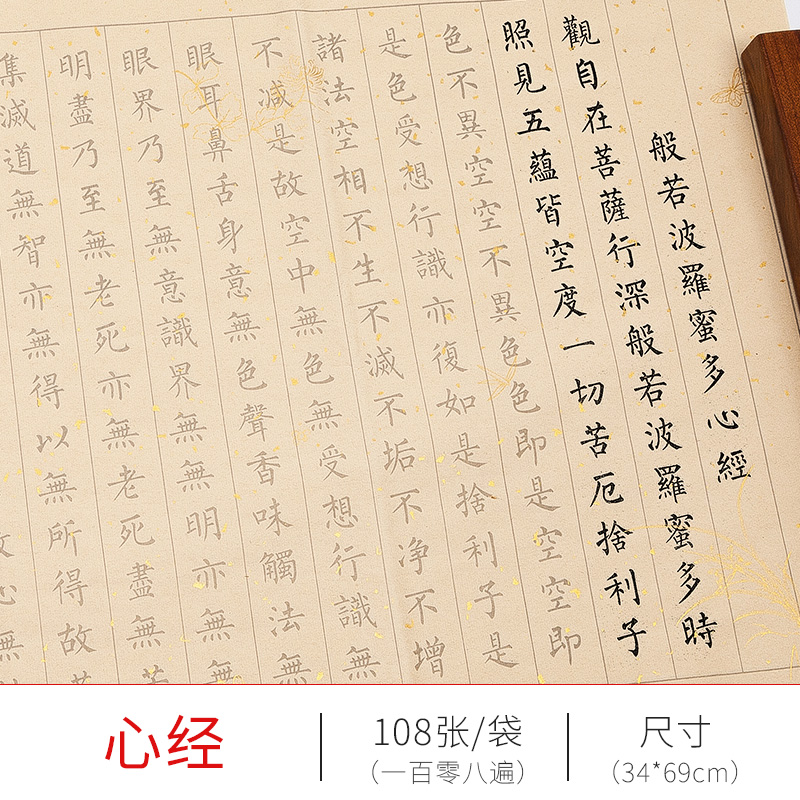 般若波羅蜜多心經
觀自在菩薩行深般若波羅蜜多時
照見五蘊皆空度一切苦厄捨利子
色不異空空不異色色即是空空即
是色受想行識亦復如是捨利子是
諸法空相不生不滅不垢不净不增
不減是故空中無色無受想行識無
眼耳鼻舌身意無色聲香味觸法無
眼界乃至無意識界無無明亦無無
明盡乃至無老死亦無老死盡無苦
集滅道無智亦無得以無所得故
心無
心经
108张/袋
（一百零八遍）
尺寸
（34*69cm）